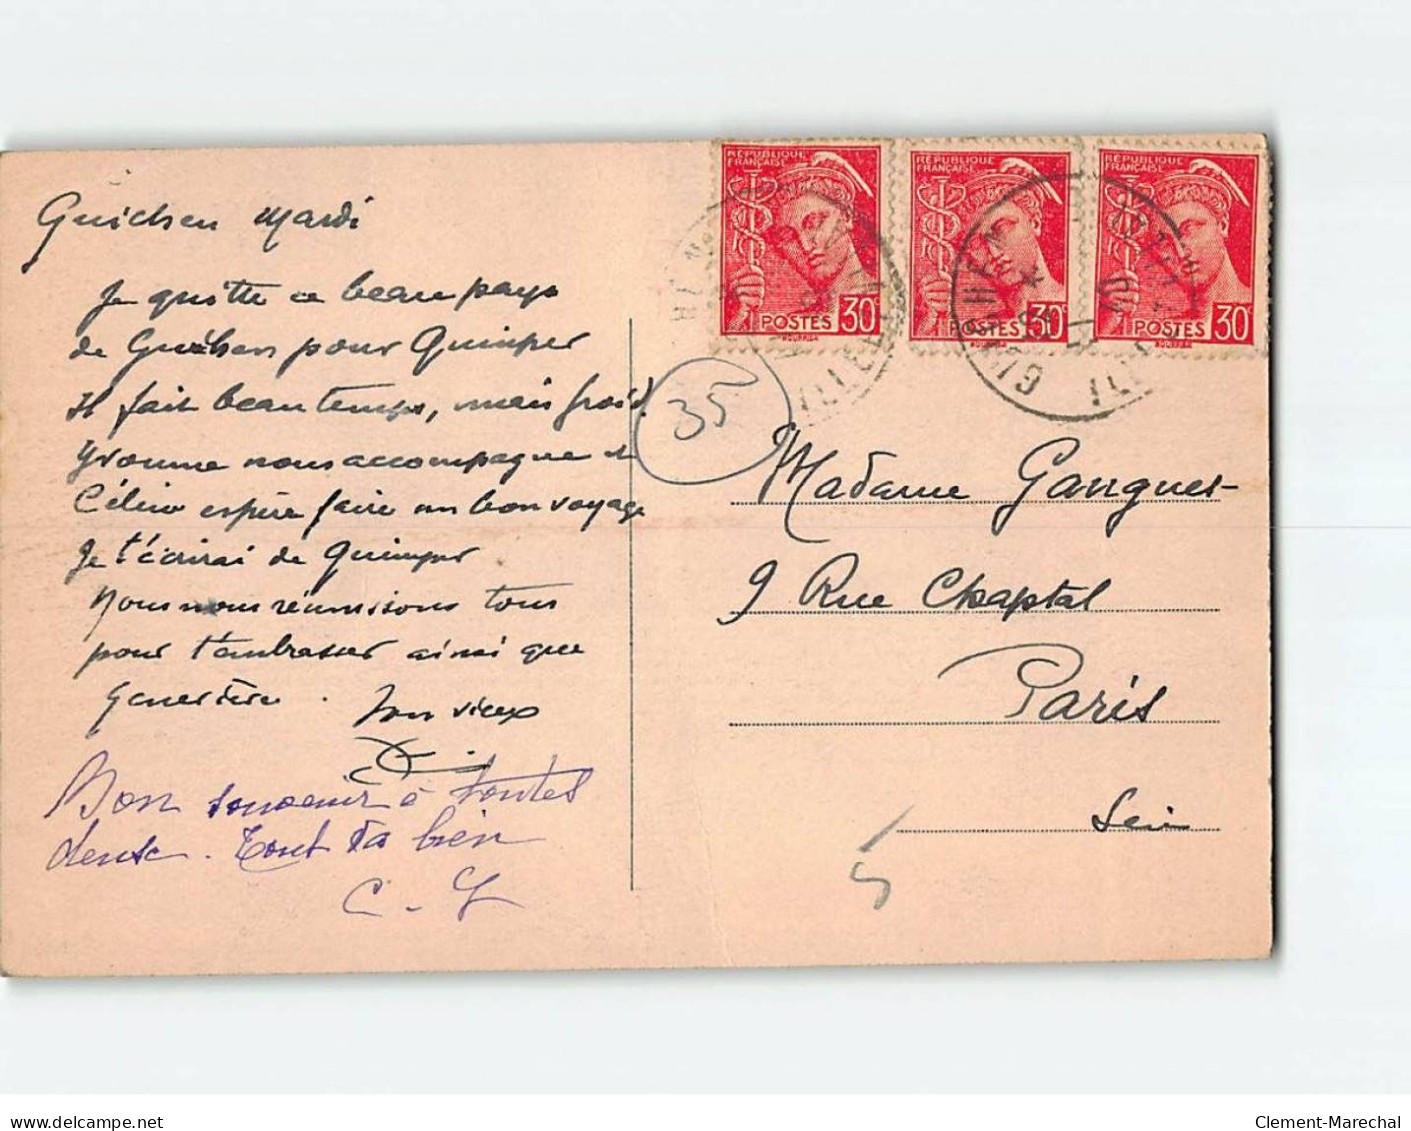 Guichen Mardi
Je quitte ce beau pays
de Guichen pour Quimper
Il fait beau temps, mais froid.
Yvonne nous accompagne et
Céline espère faire un bon voyage
Je t'écrirai de Quimper
Nous nous réunissons tous
pour t'embrasser ainsi que
Geneviève.
Ton vieux
Bon souvenir à toutes
deux. Tout va bien
C. G
35
RÉPUBLIQUE
FRANÇAISE
POSTES 30c
RÉPUBLIQUE
FRANÇAISE
POSTES 30c
RÉPUBLIQUE
FRANÇAISE
POSTES 30c
GUICHEN
Madame Gangues
9 Rue Chaptal
Paris
Seine
5
delcampe.net
Clement-Marechal